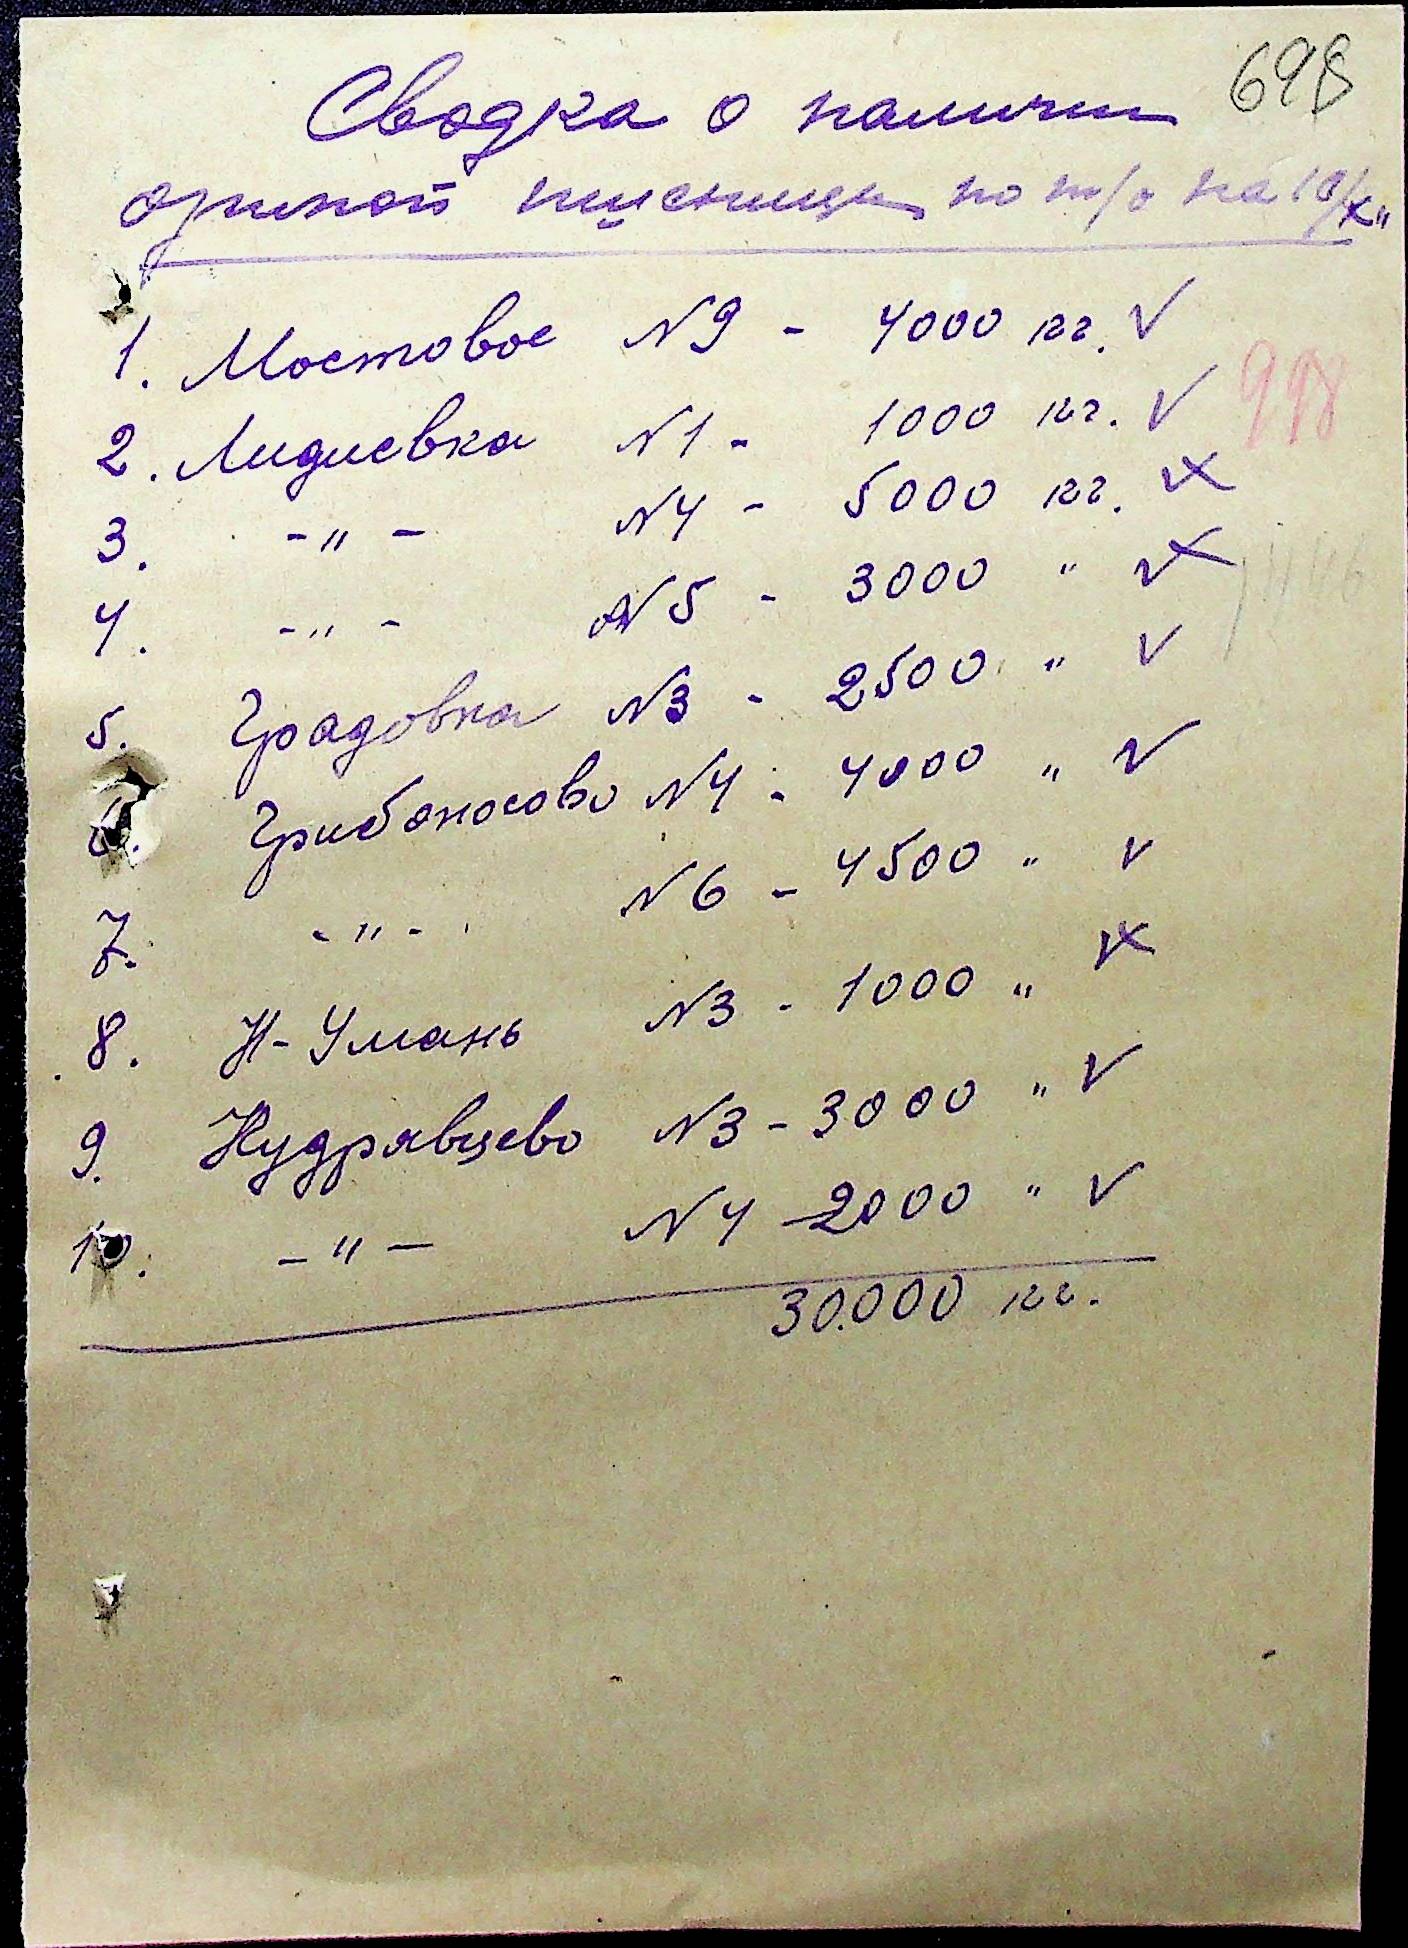 698
Сводка о наличии
озимой пшеницы по т/о на 10/X"
1. Мостовое N9 - 4000 кг. ✓
998
2. Лидиевка N1 - 1000 кг. ✓
3. -"- N4 - 5000 кг.
4. -"- N5 - 3000 "
5. Градовка N3 - 2500 " ✓
6. Грибоносово N4 - 4000 " ✓
7. -"- N6 - 4500 " ✓
8. Н-Умань N3 - 1000 "
9. Кудрявцево N3 - 3000 " ✓
10. -"- N4 - 2000 " ✓
30.000 кг.